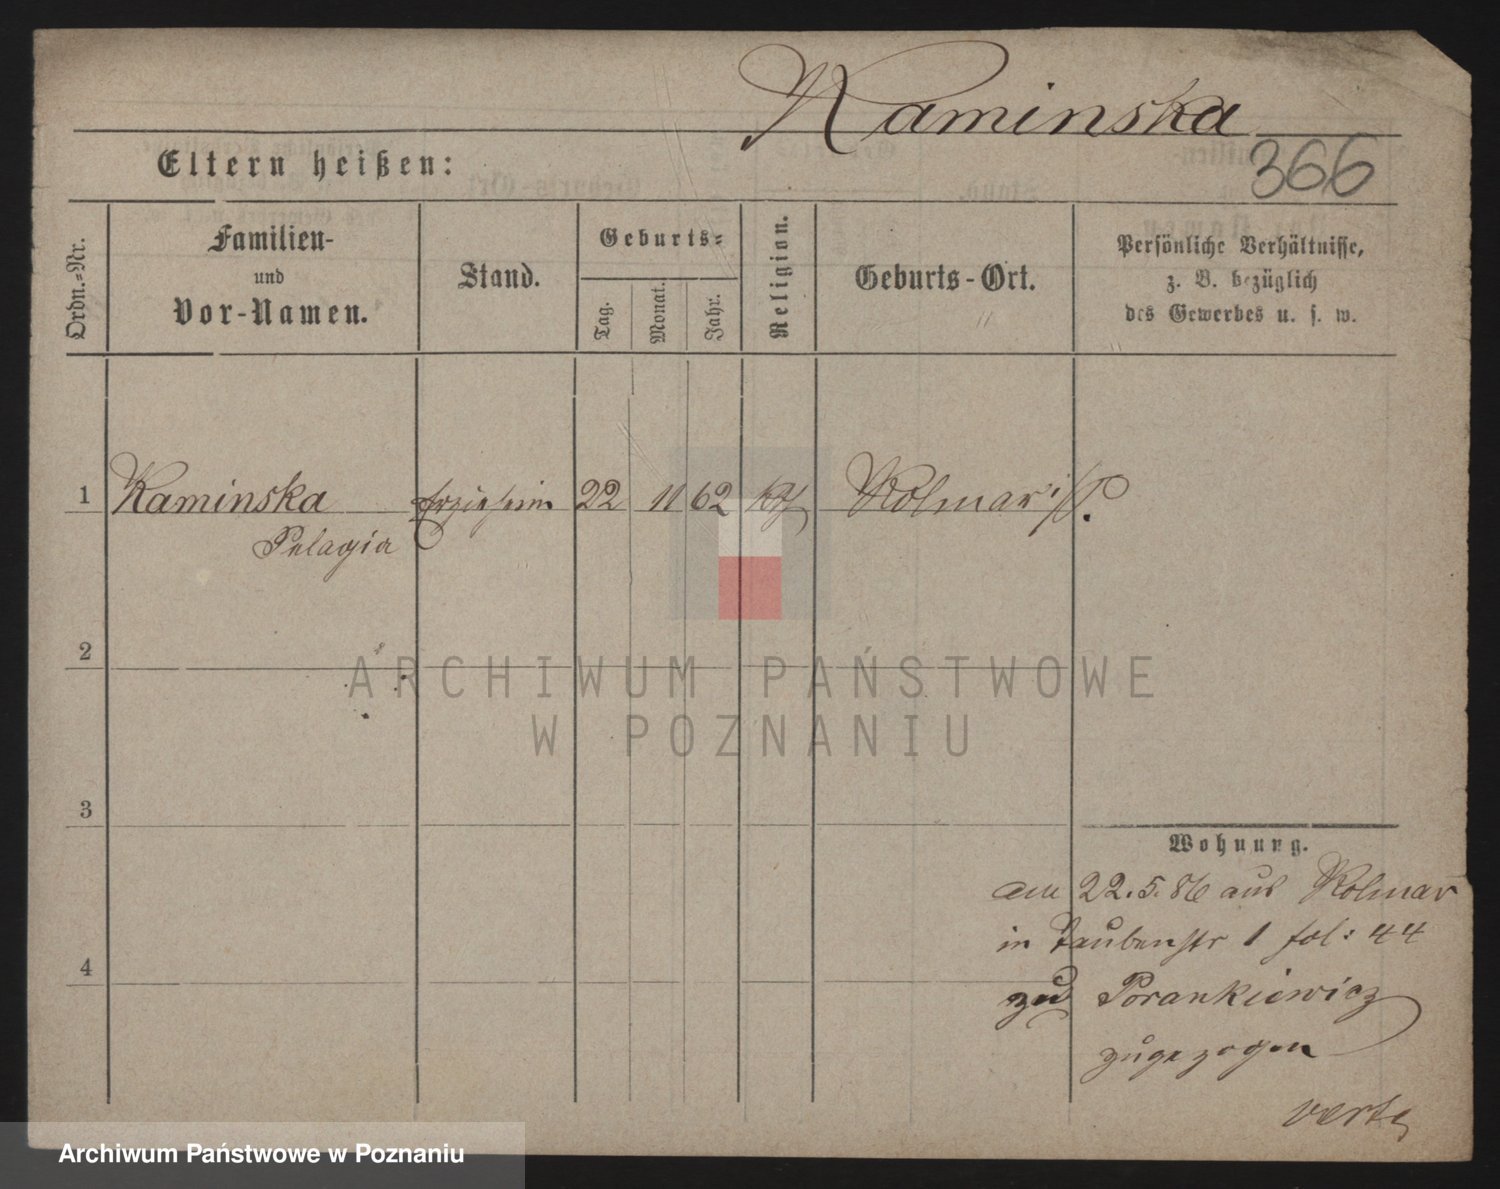 Kaminska
366
Eltern heißen:
Ordn.-Nr.
Familien-
und
Vor-Namen.
Stand.
Geburts-
Tag.
Monat.
Jahr.
Religion.
Geburts-Ort.
Persönliche Verhältnisse,
z. B. bezüglich
des Gewerbes u. s. w.
1 Kaminska Erzieherin 22 11 62 kth Kolmar i/P.
Pelagia
2
ARCHIWUM PAŃSTWOWE
W POZNANIU
3
Wohnung.
am 22.5.86 aus Kolmar
in Taubenstr 1 fol: 44
4
zu Porankiewicz
zugezogen
verte
Archiwum Państwowe w Poznaniu